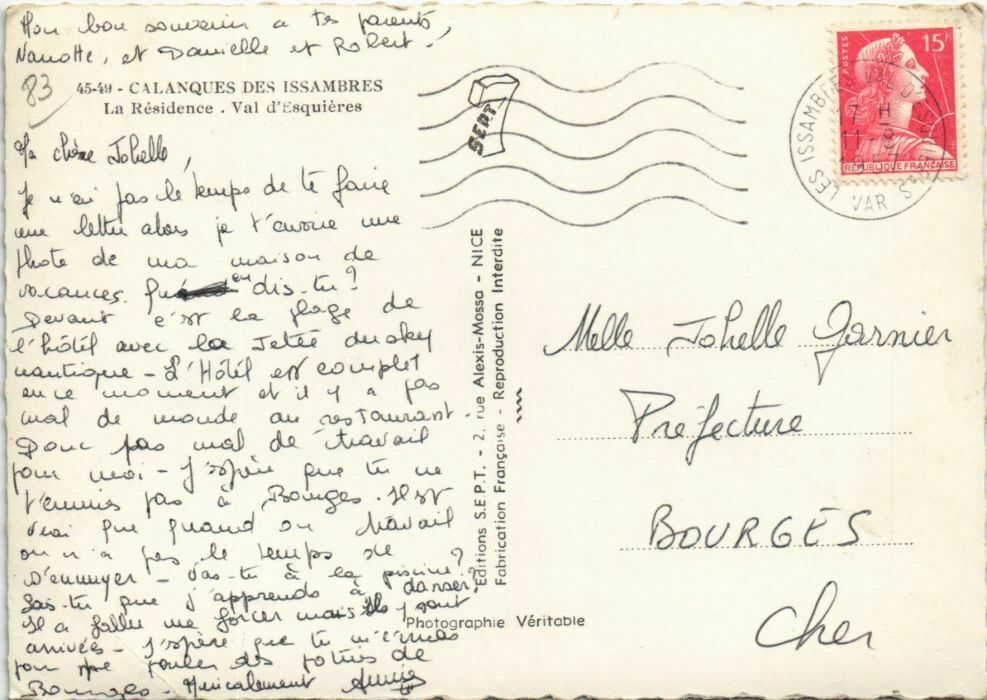 Mon bon souvenir a tes parents,
Nanette, et Danielle et Robert.
83
45-49 - CALANQUES DES ISSAMBRES
La Résidence . Val d'Esquières
Ma chère Johelle,
Je n'ai pas le temps de te faire
une lettre alors je t'envoie une
photo de ma maison de
vacances. Qu'en dis-tu?
Devant c'est la plage de
l'hôtel avec la Jetée du sky
nautique - L'Hôtel est complet
en ce moment et il y a pas
mal de monde au restaurant.
Donc pas mal de travail
pour moi - J'espère que tu ne
t'ennuies pas à Bourges. Il est
vrai que quand on travail
on n'a pas le temps de
s'ennuyer - Vas-tu à la piscine?
Sais-tu que j'apprends à danser?
Il a fallu me forcer mais ils y sont
arrivés - J'espère que tu m'écriras
pour me parler des potins de
Bourges - Amicalement Annie
Editions S.E.P.T. - 2, rue Alexis-Mossa - NICE
Fabrication Française - Reproduction Interdite
Photographie Véritable
SEPT
POSTES
15F
REPUBLIQUE FRANÇAISE
LES ISSAMBRES
VAR
17 H
11-8
1957
Melle Johelle Garnier
Préfecture
BOURGES
Cher